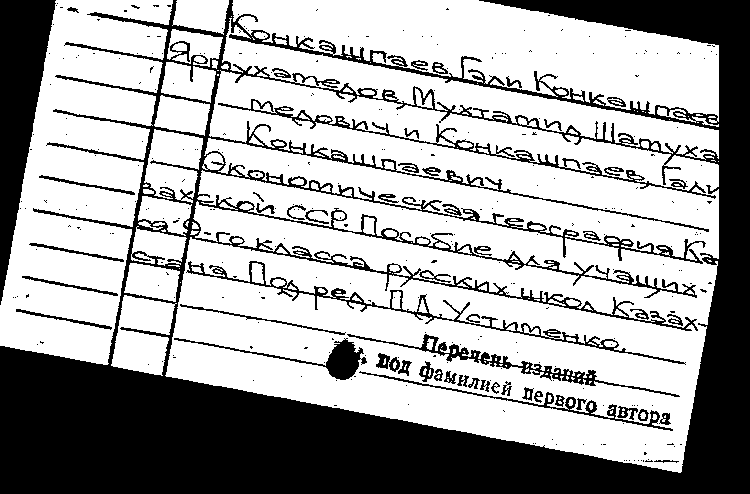 Конкашпаев, Гали Конкашпаев
Ярмухамедов, Мухтамид Шамуха
медович и Конкашпаев, Гали
Конкашпаевич.
Экономическая география Ка
захской ССР. Пособие для учащих-
ся 9-го класса русских школ Казах-
стана. Под ред. П.Д. Устименко.
Перечень изданий
под фамилией первого автора